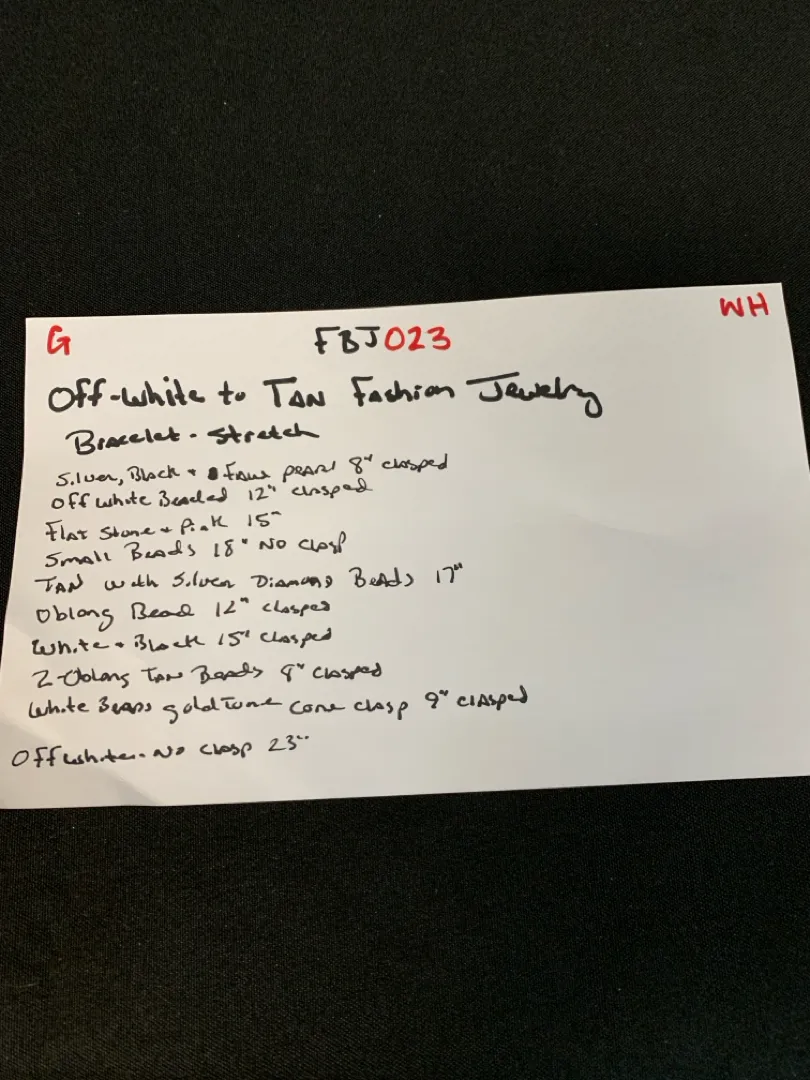 G FBJ023 WH
Off-white to TAN Fashion Jewelry
Bracelet - Stretch
Silver, Black + Faux pearl 8" clasped
Off white Beaded 12" clasped
Flat Stone + Pink 15"
Small Beads 18" No clasp
TAN with Silver Diamond Beads 17"
Oblong Bead 12" clasped
White + Black 15" clasped
2-Oblong Tan Beads 8" clasped
White Beads goldtone cone clasp 9" clasped
Off white - No clasp 23"